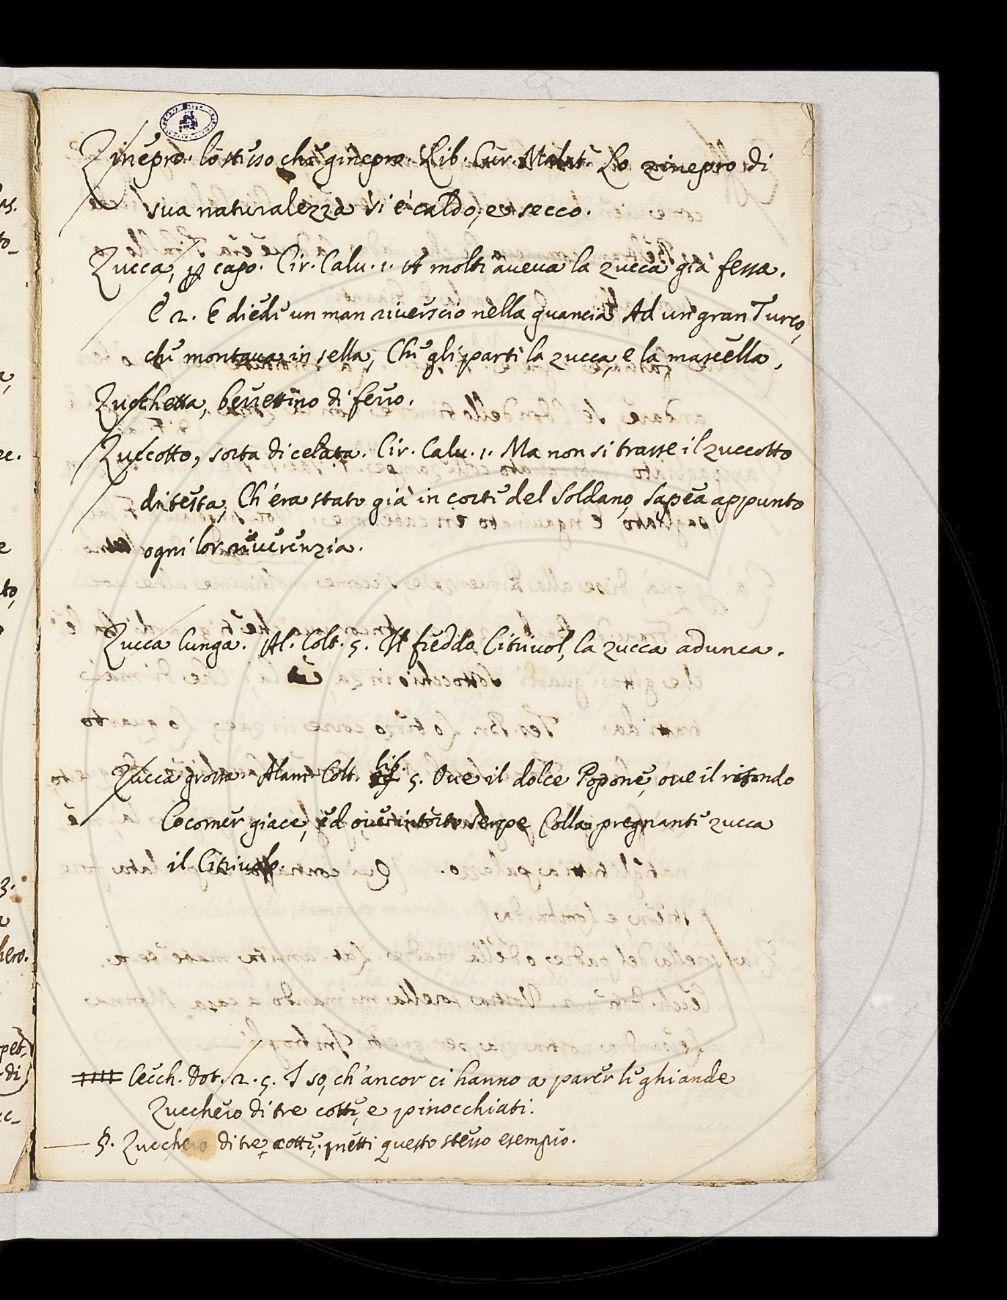 Zinepro. lo stesso che ginepro. Lib. Cur. Malat. Lo zinepro di
sua naturalezza si è caldo, e secco.
Zucca, p capo. Cir. Calv. 1. A molti aveva la zucca già fessa.
E 2. E diede un man riverscio nella guancia Ad un gran Turco,
che montava in sella, Che gli sparti la zucca, e la mascella.
Zucchetta, berrettino di ferro.
Zuccotto, sorta di celata. Cir. Calv. 1. Ma non si trasse il zuccotto
di testa, Ch'era stato già in corte del Soldano, Sapea appunto
ogni lor riverenzia.
Zucca lunga. Al. Colt. 5. Il freddo Citriuol, la zucca adunca.
Zucca grossa. Alam. Colt. lib. 5. Ove il dolce Popone, ove il ritondo
Cocomer giace, ed ove intorto serpe Colla pregnante zucca
il Citriuolo.
Cecch. Dot. 2. 5. I so, ch'ancor ci hanno a parer le ghiande
Zucchero di tre cotte, e pinocchiati.
§. Zucchero di tre cotte, metti questo stesso esempio.